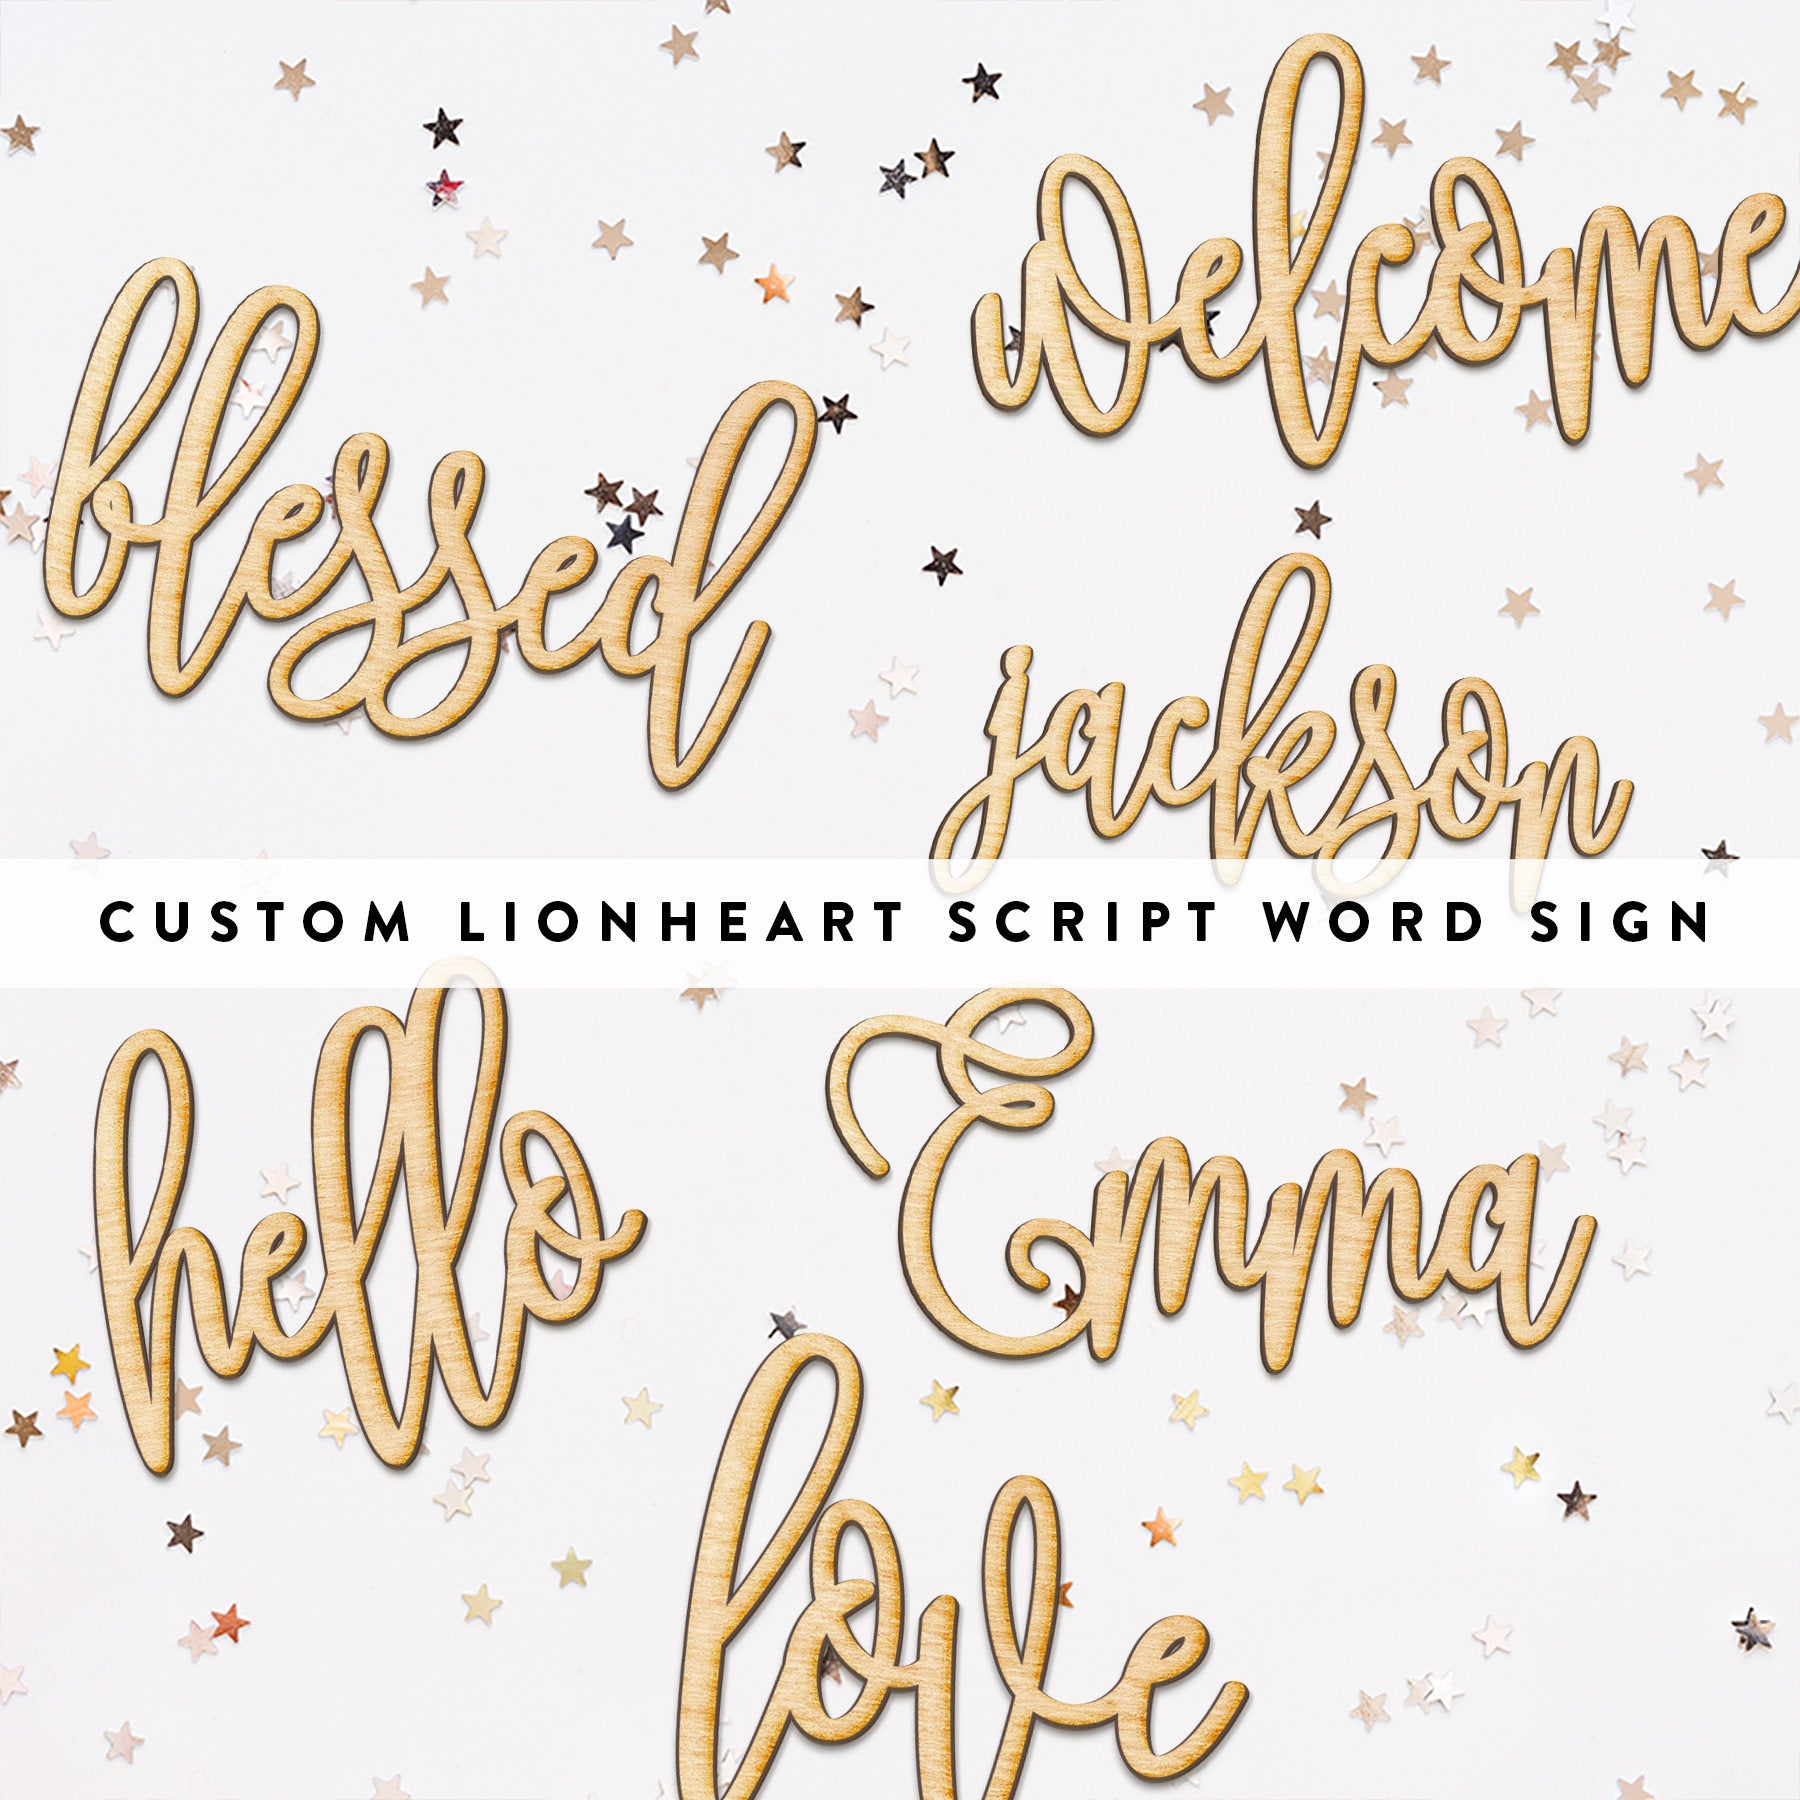 welcome
blessed
jackson
CUSTOM LIONHEART SCRIPT WORD SIGN
hello
Emma
love